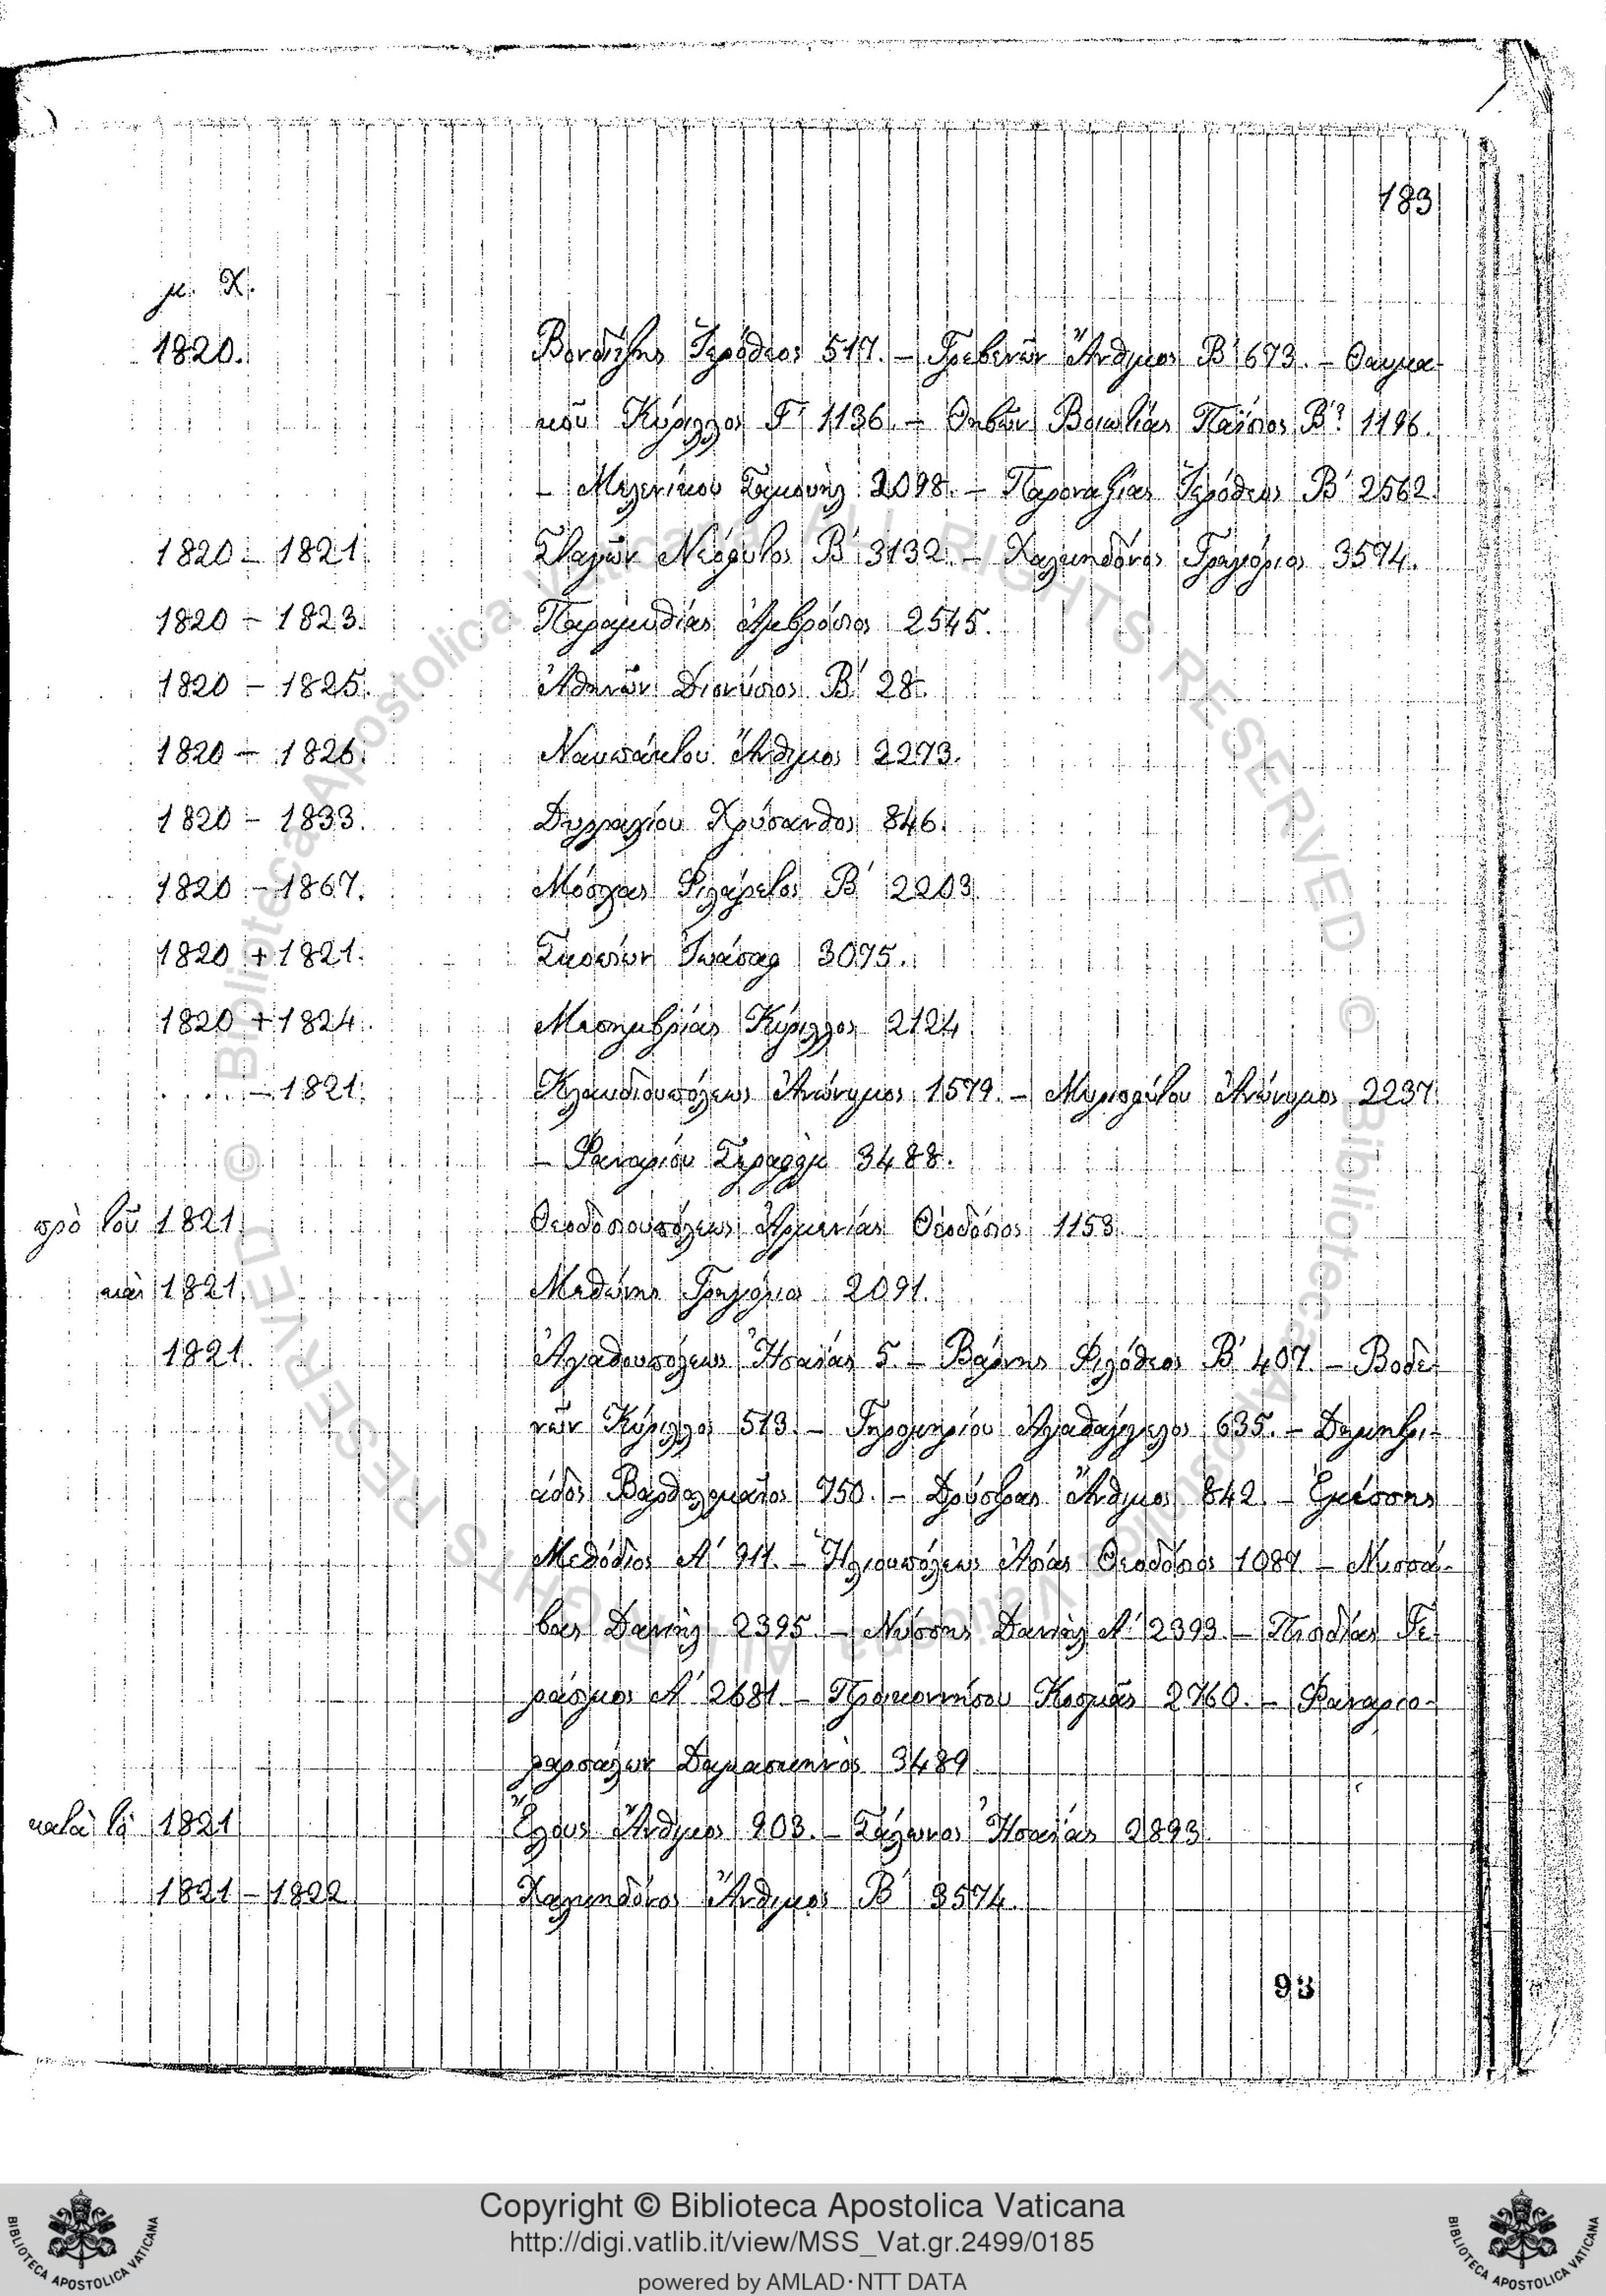 183
μ. Χ.
1820. Βονδίτζης Ἱερόθεος 517. – Γρεβενῶν Ἄνθιμος Β´ 673. – Θαυμα-
κοῦ Κύριλλος Γ´ 1136. – Θηβῶν Βοιωτίας Παΐσιος Β´? 1196.
– Μελενίκου Σαμουὴλ 2098. – Παροναξίας Ἱερόθεος Β´ 2562.
1820 – 1821. Σταγῶν Νεόφυτος Β´ 3132. – Χαλκηδόνος Γρηγόριος 3574.
1820 – 1823. Παραμυθίας Ἀμβρόσιος 2545.
1820 – 1825. Ἀθηνῶν Διονύσιος Β´ 28.
1820 – 1826. Ναυπάκτου Ἄνθιμος 2273.
1820 – 1833. Δυρραχίου Χρύσανθος 846.
1820 – 1867. Μόσχας Φιλάρετος Β´ 2203.
1820 + 1821. Σκοπίων Ἰωάσαφ 3075.
1820 + 1824. Μεσημβρίας Κύριλλος 2124.
. . . . – 1821. Κλαυδιουπόλεως Ἀνώνυμος 1579. – Μυριοφύτου Ἀνώνυμος 2237.
– Φαναρίου Σεραφὶμ 3488.
πρὸ τοῦ 1821. Θεοδοσιουπόλεως Ἀρμενίας Θεοδόσιος 1153.
καὶ 1821. Μεθώνης Γρηγόριος 2091.
1821. Ἀγαθουπόλεως Ἠσαΐας 5. – Βάρνης Φιλόθεος Β´ 407. – Βοδε-
νῶν Κύριλλος 513. – Γηρομηρίου Ἀγαθάγγελος 635. – Δημητρι-
άδος Βαρθολομαῖος 750. – Δρύστρας Ἄνθιμος 842. – Ἐμέσσης
Μεθόδιος Α´ 911. – Ἡλιουπόλεως Ἀσίας Θεοδόσιος 1087. – Νυσσά-
βας Δανιὴλ 2395. – Νύσσης Δανιὴλ Α´ 2393. – Πισιδίας Γε-
ράσιμος Α´ 2681. – Προικοννήσου Κοσμᾶς 2760. – Φαναριο-
φαρσάλων Δαμασκηνὸς 3489.
κατὰ τὸ 1821 Ἕλους Ἄνθιμος 903. – Σάλωνος Ἠσαΐας 2893.
1821 – 1822 Χαλκηδόνος Ἄνθιμος Β´ 3574.
93
Copyright © Biblioteca Apostolica Vaticana
http://digi.vatlib.it/view/MSS_Vat.gr.2499/0185
powered by AMLAD·NTT DATA